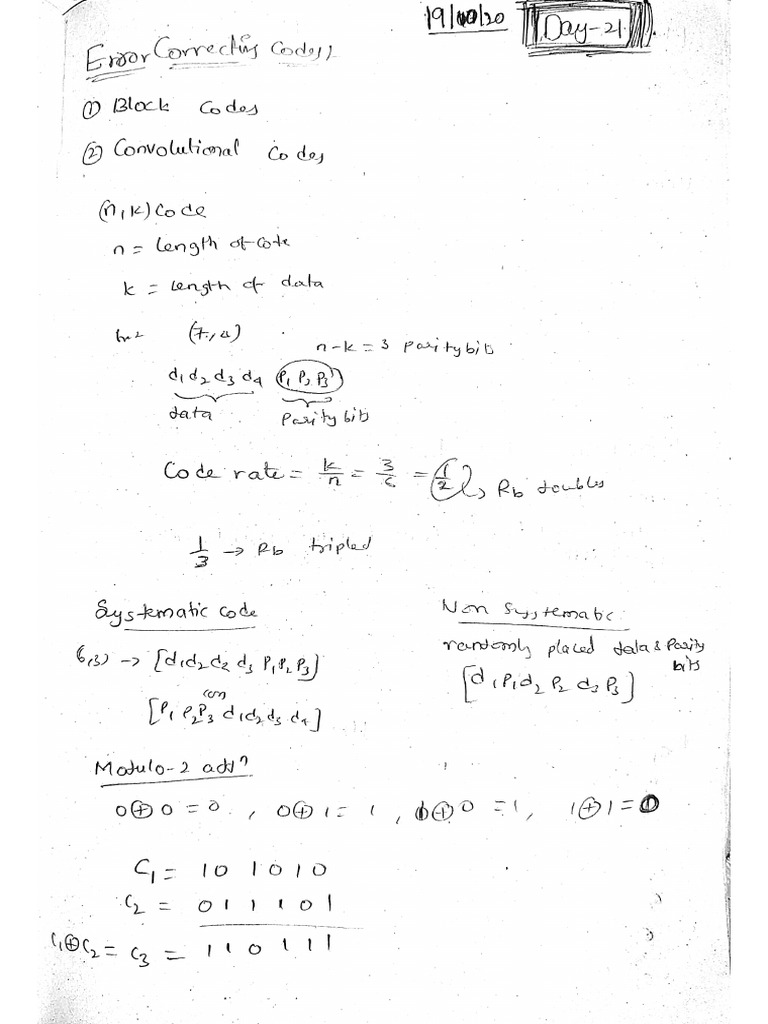 19/10/20 Day-21
Error Correcting Codes
① Block Codes
② Convolutional Codes
(n,k) Code
n = Length of code
k = Length of data
(7,4)
n-k = 3 parity bits
d1 d2 d3 d4 (P1 P2 P3)
data Parity bits
Code rate = k/n = 3/6 = 1/2 → Rb doubles
1/3 → Rb tripled
Systematic code
(6,3) → [d1d2d2 d3 P1P2P3]
(or)
[P1 P2P3 d1d2d3 d4]
Non Systematic
randomly placed data & Parity
bits
[d1P1d2 P2 d3P3]
Modulo-2 addn
0⊕0 = 0, 0⊕1 = 1, 1⊕0 = 1, 1⊕1 = 0
C1 = 10 1010
C2 = 011101
C1⊕C2 = C3 = 110111